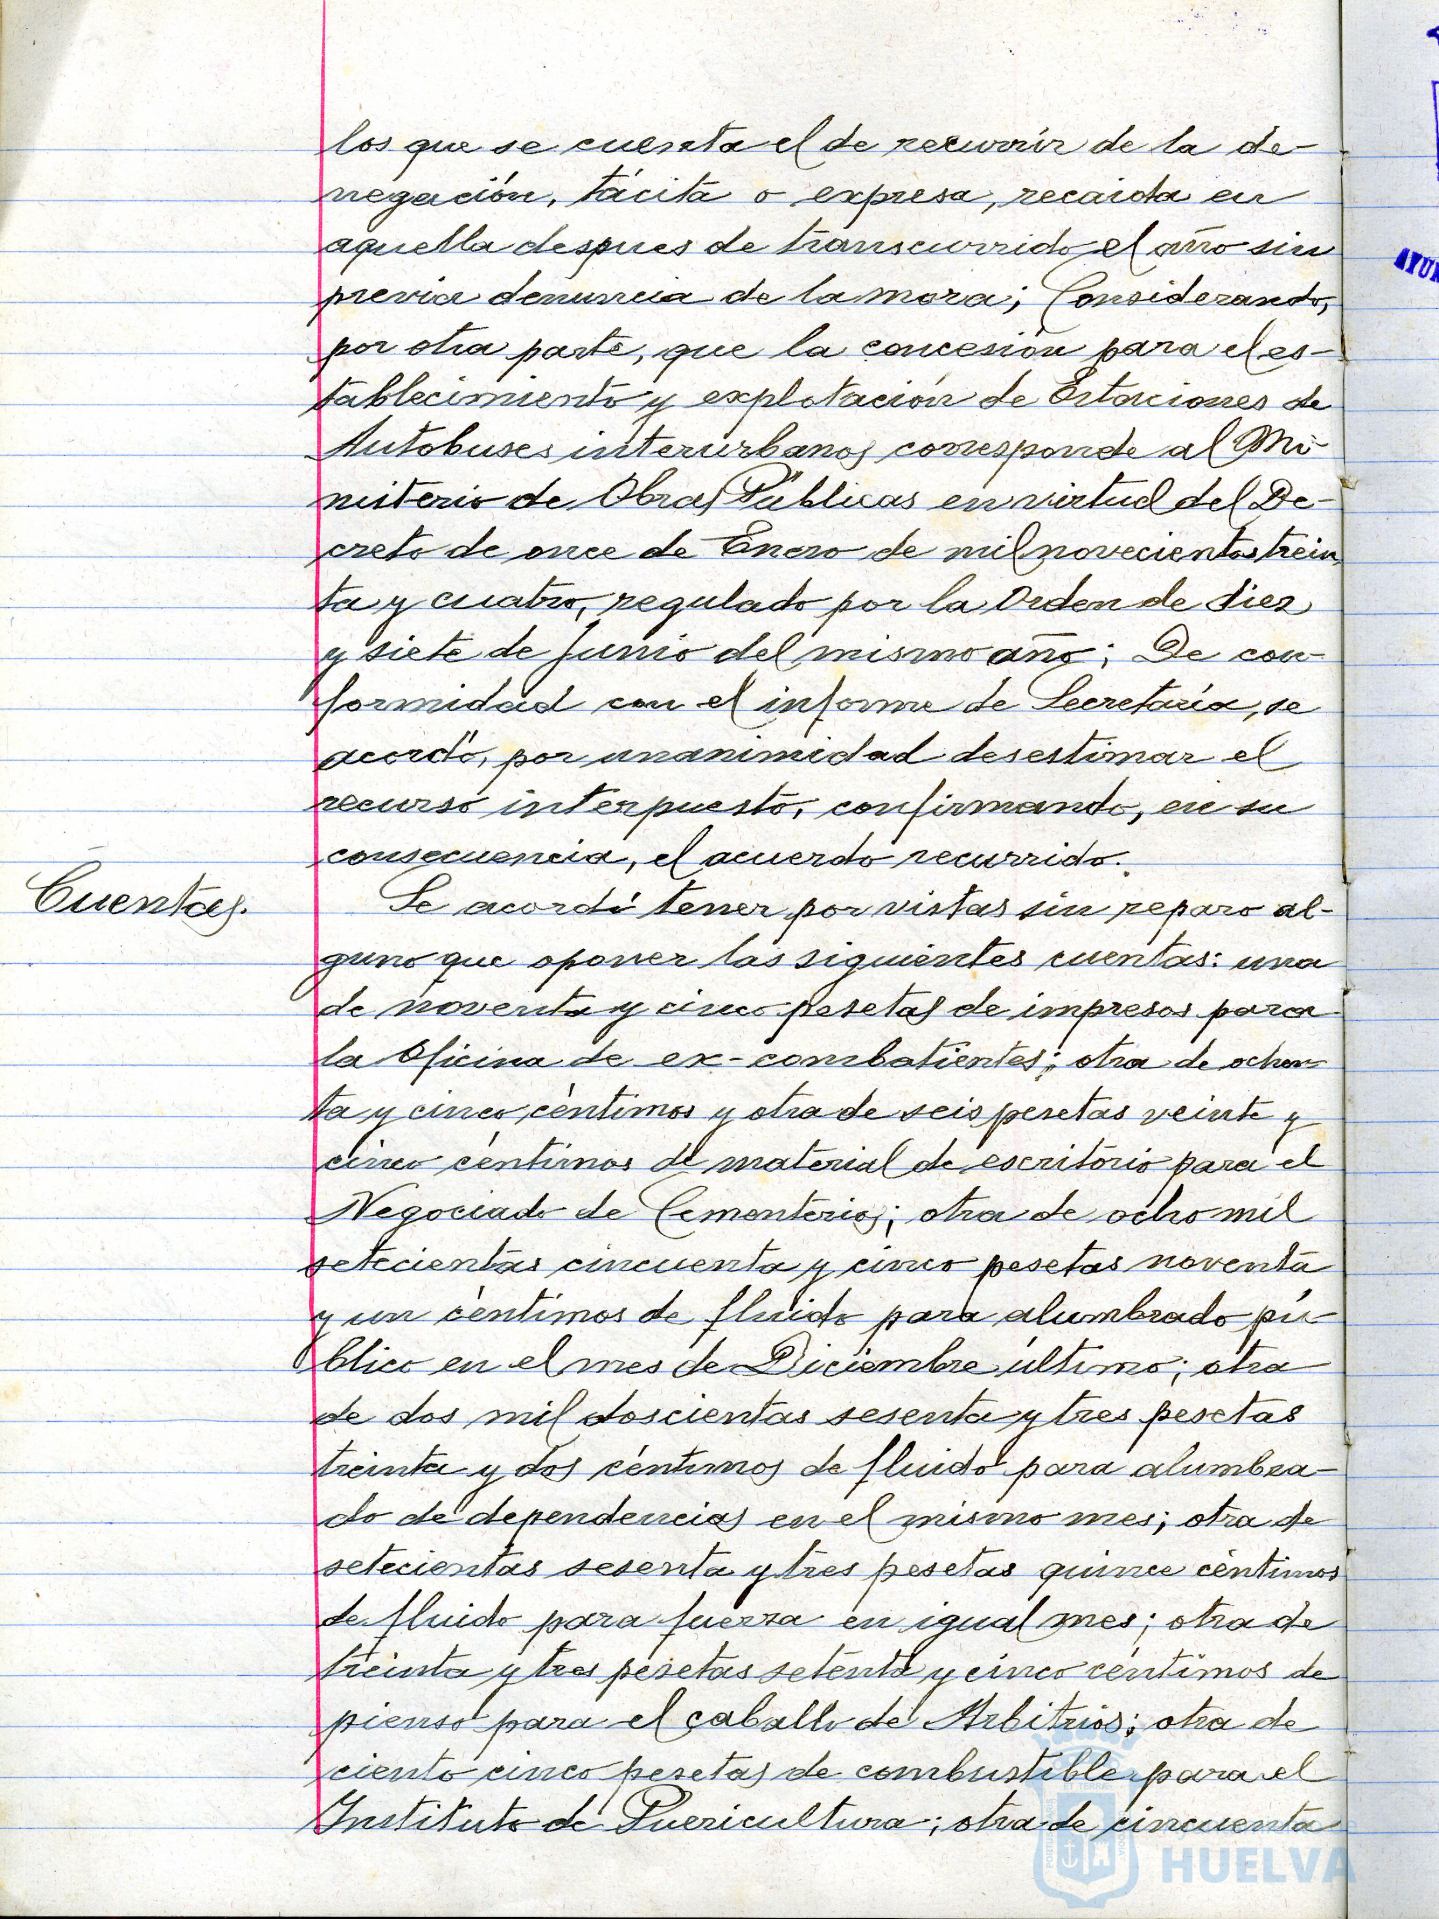 los que se cuenta el de recurrir de la de-
negación, tácita o expresa, recaida en
aquella despues de transcurrido el año sin
previa denuncia de la mora; Considerando,
por otra parte, que la concesión para el es-
tablecimiento y explotación de Estaciones de
Autobuses interurbanos corresponde al Mi-
nisterio de Obras Públicas en virtud del De-
creto de once de Enero de mil novecientos trein
ta y cuatro, regulado por la Orden de diez
y siete de Junio del mismo año; De con-
formidad con el informe de Secretaría, se
acordó, por unanimidad desestimar el
recurso interpuesto, confirmando, en su
consecuencia, el acuerdo recurrido.
Cuentas.
Se acordó tener por vistas sin reparo al-
guno que oponer las siguientes cuentas: una
de noventa y cinco pesetas de impresos para
la Oficina de ex-combatientes; otra de ochen-
ta y cinco céntimos y otra de seis pesetas veinte y
cinco céntimos de material de escritorio para el
Negociado de Cementerios; otra de ocho mil
setecientas cincuenta y cinco pesetas noventa
y un céntimos de fluido para alumbrado pú-
blico en el mes de Diciembre último; otra
de dos mil doscientas sesenta y tres pesetas
treinta y dos céntimos de fluido para alumbra-
do de dependencias en el mismo mes; otra de
setecientas sesenta y tres pesetas quince céntimos
de fluido para fuerza en igual mes; otra de
treinta y tres pesetas setenta y cinco céntimos de
pienso para el caballo de Arbitrios; otra de
ciento cinco pesetas de combustible para el
Instituto de Puericultura; otra de cincuenta
HUELVA